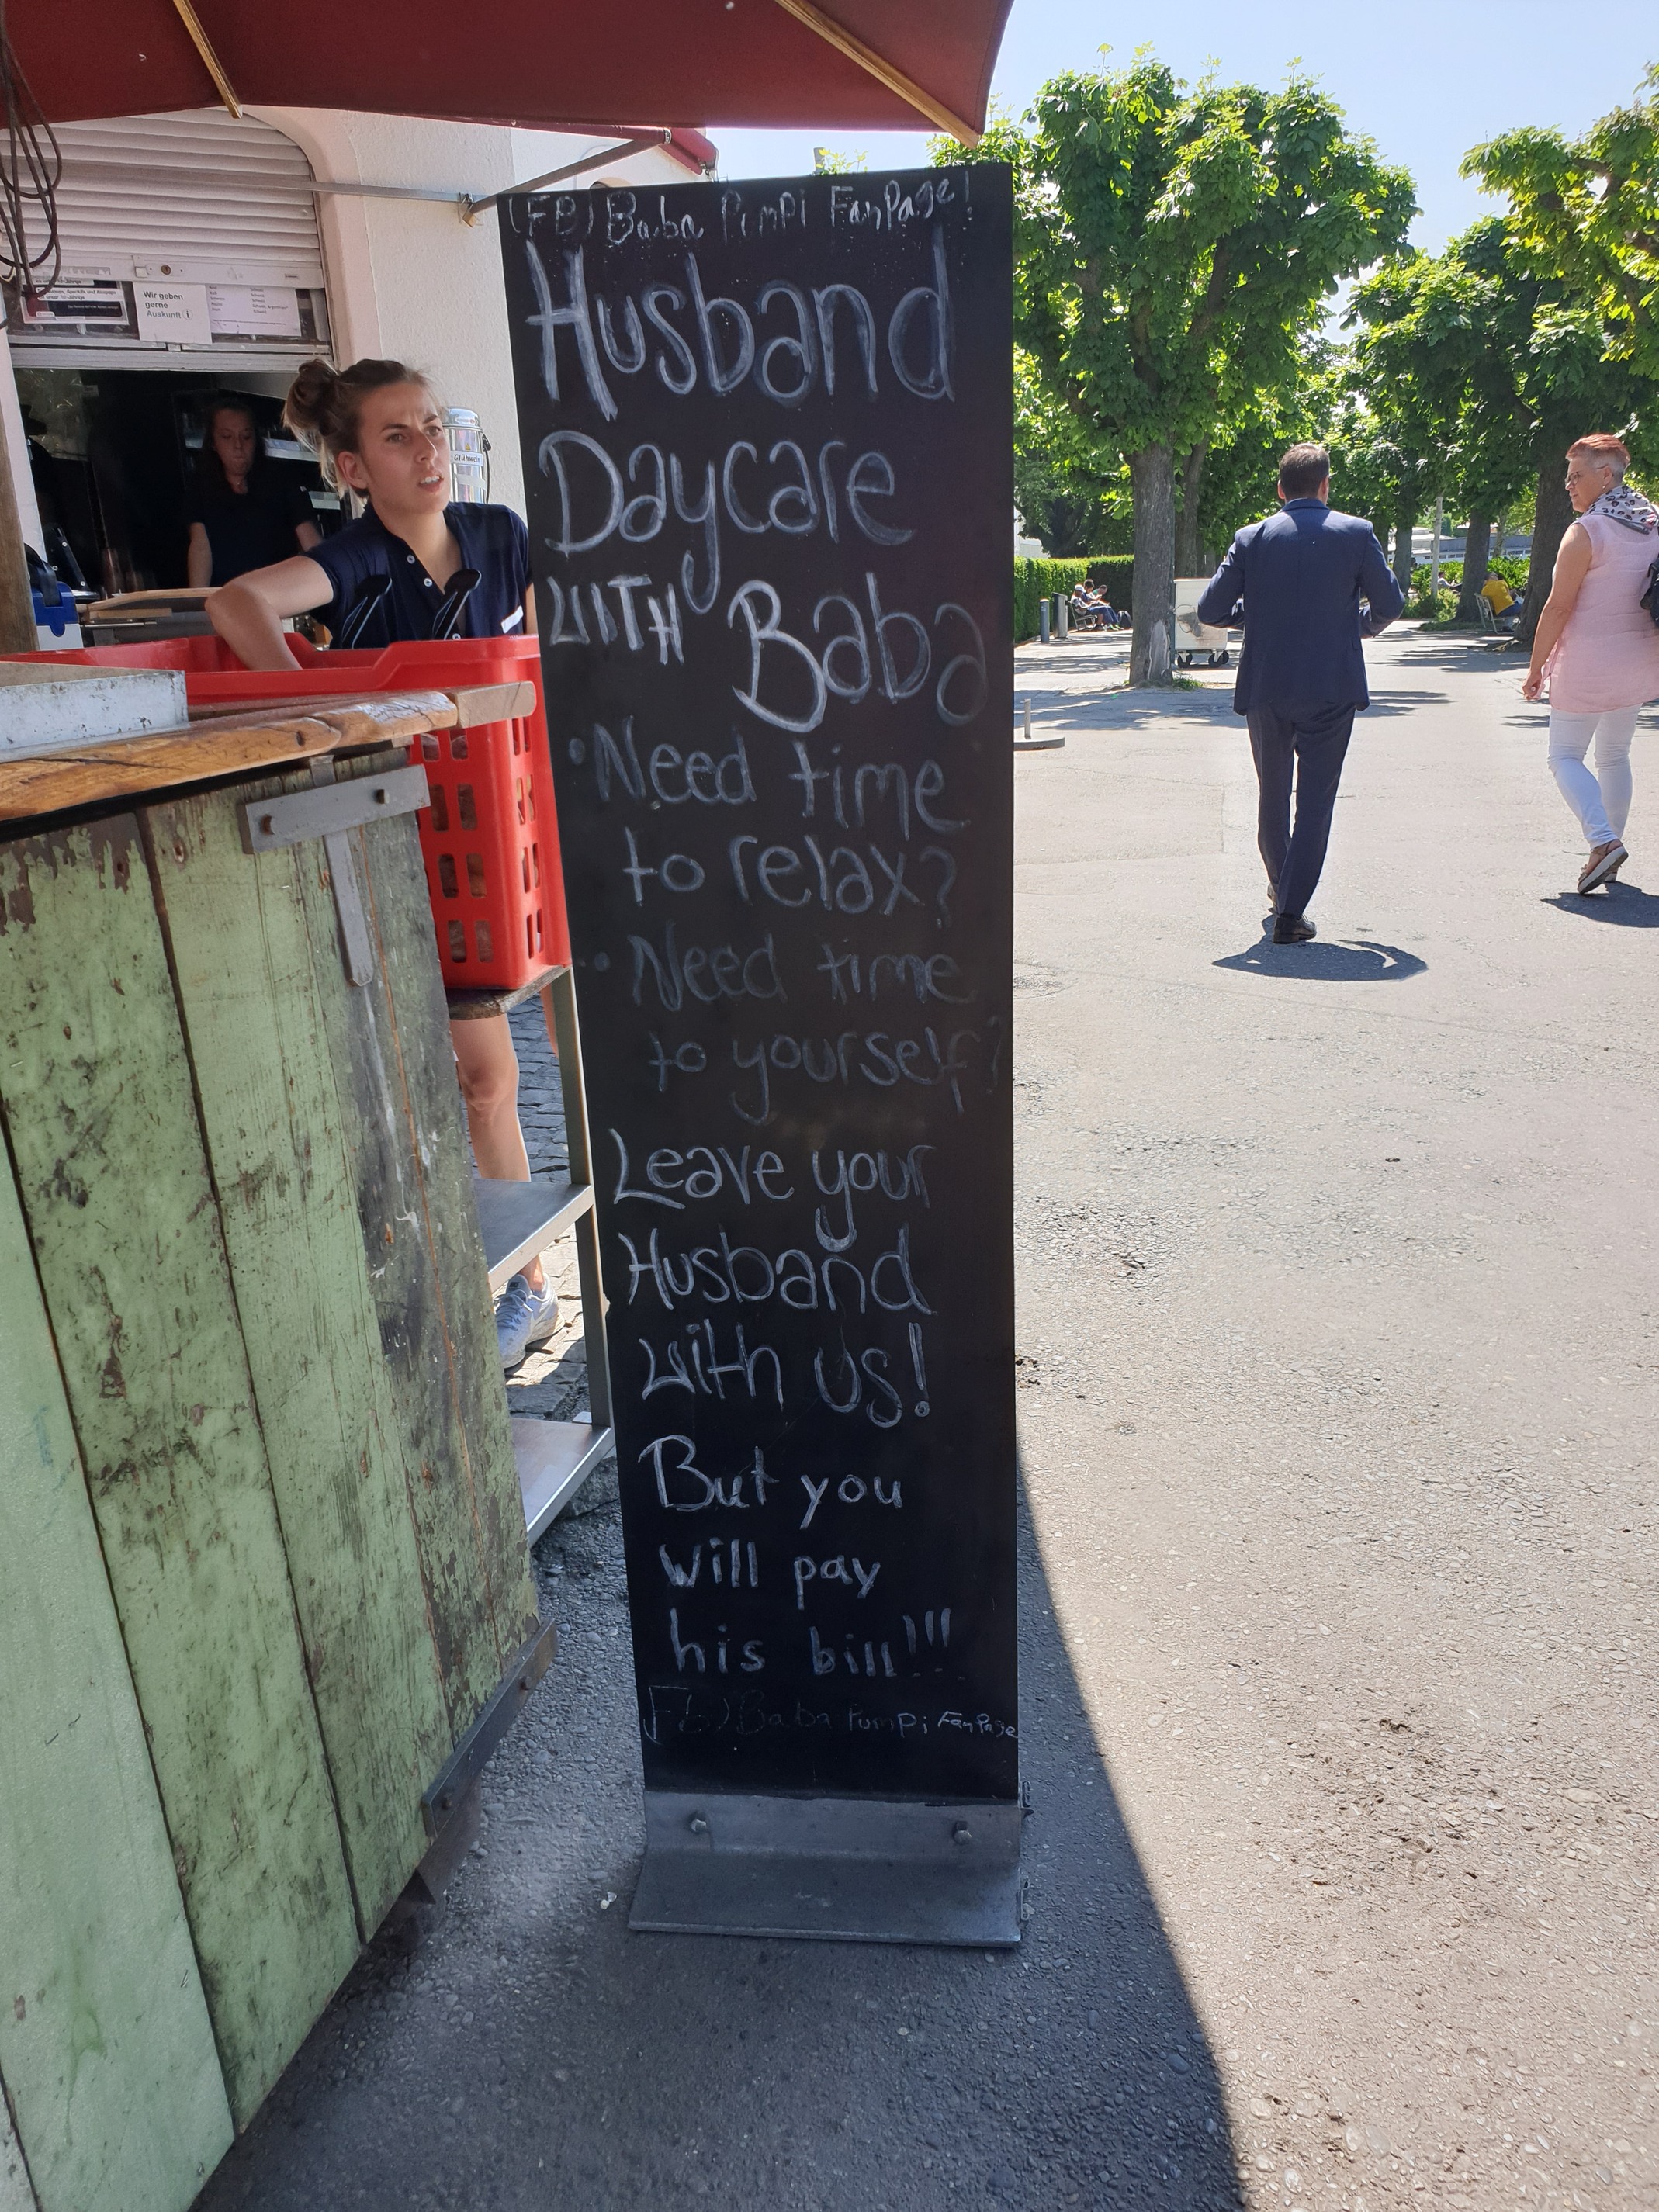 (FB) Baba Pumpi FanPage!
Husband
Daycare
WITH Baba
• Need time
to relax?
• Need time
to yourself?
Leave your
Husband
with us!
But you
will pay
his bill!!!
(Fb) Baba Pumpi FanPage
Wir geben
gerne
Auskunft i
Glühwein